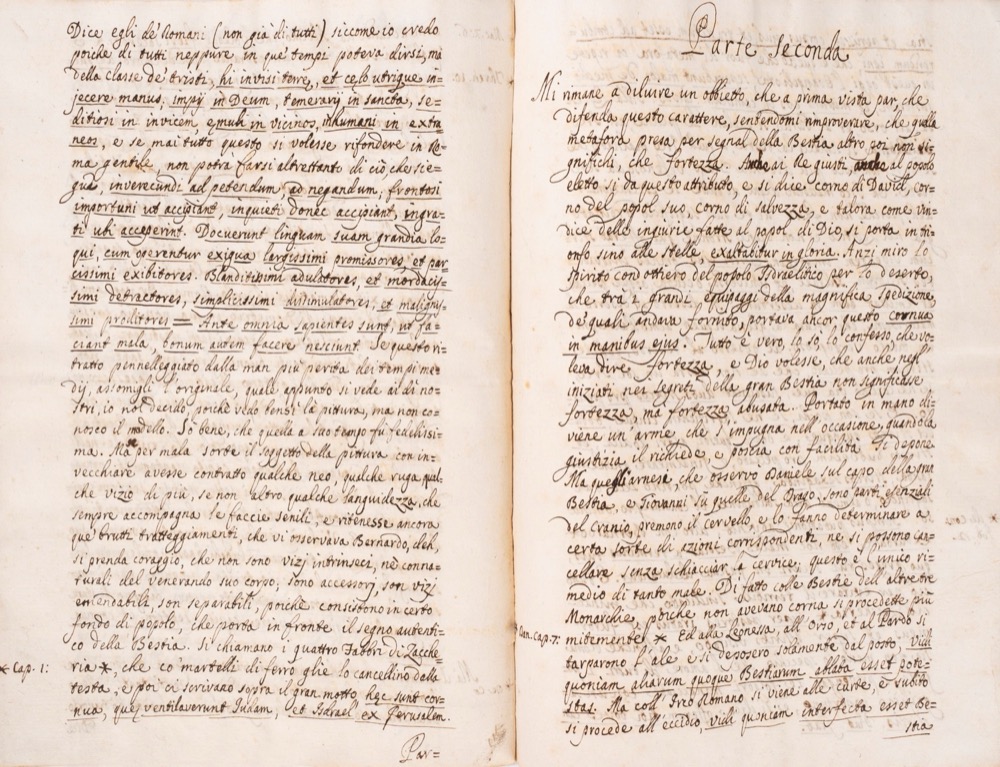 Dice egli de' Romani (non già di tutti) siccome io credo
poiche di tutti neppure in que' tempi poteva dirsi, ma
della classe de' tristi, hi invisi terrę, et cęlo utrique in=
jecere manus, impij in Deum, temerarij in sancta, se=
ditiosi in invicem ęmuli in vicinos, inhumani in extra
neos, e se mai tutto questo si volesse rifondere in Ro=
ma gentile, non potrà farsi altrettanto di ciò che sie=
gue, inverecundi ad petendum ad negandum, frontosi
importuni ut accipiant, inquieti donec accipiant, ingra=
ti ubi acceperint. Docuerunt linguam suam grandia lo=
qui, cum operentur exigua largissimi promissores, et par
cissimi exibitores. Blanditissimi adulatores, et mordacis=
simi detractores, simplicissimi dissimulatores, et malignis=
simi proditores = Ante omnia sapientes sunt, ut fa=
ciant mala, bonum autem facere nesciunt. Se questo ri=
tratto pennelleggiato dalla man più perita dei tempi me=
dij, assomigli l'originale, quale appunto si vede ai dì no=
stri, io nol decido, poichè vedo bensì la pittura, ma non co=
nosco il modello. So bene, che quella a suo tempo fù fedelissi=
ma. Ma se per mala sorte il soggetto della pittura con in=
vecchiare avesse contratto qualche neo, qualche ruga qual
che vizio di più, se non altro qualche languidezza, che
sempre accompagna le faccie senili, e ritenesse ancora
que' brutti tratteggiamenti, che vi osservava Bernardo, deh,
si prenda coraggio, che non sono vizj intrinseci, ne conna=
turali del venerando suo corpo, sono accessorj, son vizj
emendabili, son separabili, poiche consistono in certo
fondo di popolo, che porta in fronte il segno autenti=
co della Bestia. Si chiamano i quattro Fabbri di Zacche=
* Cap. 1: ria *, che co' martelli di ferro glie lo cancellino dalla
testa, e poi ci scrivano sopra il gran motto, hęc sunt cor=
nua, quę ventilaverunt Iudam, et Isdrael ex Jerusalem.
Par=
Parte Seconda
Mi rimane a diluire un obbietto, che a prima vista par, che
difenda questo carattere, sentendomi rimproverare, che quella
metafora presa per segnal della Bestia altro poi non si=
gnifichi che fortezza. Anche ai Re giusti, anche al popolo
eletto si da questo attributo, e si dice corno di David, cor=
no del popol suo, corno di salvezza, e talora come vin=
dice delle ingiurie fatte al popol di Dio, si porta in tri=
onfo sino alle stelle, exaltabitur in gloria. Anzi miro lo
Spirito condottiero del popolo Isdraelitico per lo deserto,
che trà i grandi equipaggi della magnifica Spedizione,
de' quali andava fornito, portava ancor questo cornua
in manibus ejus. Tutto è vero, lo so, lo confesso, che vo=
leva dire fortezza, e Dio volesse, che anche negl'
iniziati nei segreti della gran Bestia non significasse
fortezza, ma fortezza abusata. Portato in mano di=
viene un arme che s'impugna nell'occasione, quando la
giustizia il richiede, e poscia con facilità si depone
Ma quegli arnesi, che osservò Daniele sul capo della gran
Bestia, e Giovanni sù quelle del Drago, sono parti essenziali
del cranio, premono il cervello, e lo fanno determinare a
certa sorte di azioni corrispondenti, ne si possono can=
cellare senza schiacciar la cervice, questo è l'unico ri=
medio di tanto male. Di fatto colle Bestie dell'altre tre
Monarchie, poichè non avevano corna si procedette più
Dan. Cap. 7: mitemente * Ed alla Leonessa, all'Orso, et al Pardo si
tarparono l'ale, e si deposero solamente dal posto, vidi
quoniam aliarum quoque Bestiarum ablata esset pote=
stas. Ma coll'Irco Romano si viene alle curte, e subito
si procede all'eccidio, vidi quoniam interfecta esset Be=
stia